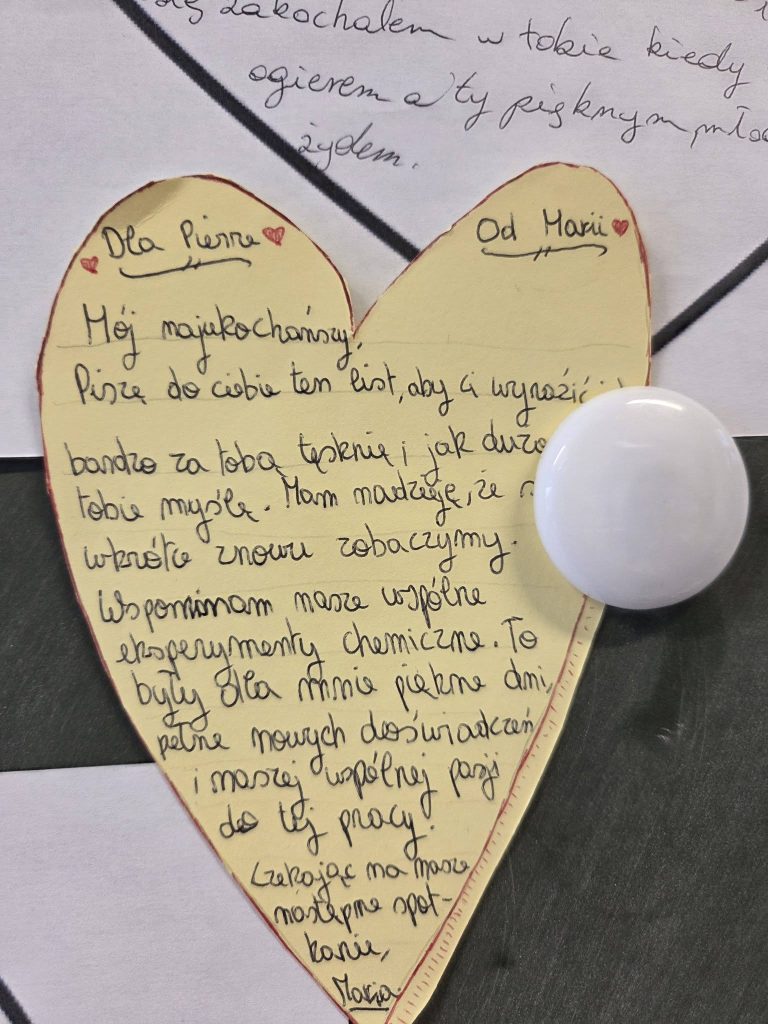 zakochałem w tobie kiedy
ogierem a ty pięknym
żydem.
Dla Pierre
Od Marii
Mój najukochańszy,
Piszę do ciebie ten list, aby ci wyrazić
bardzo za tobą tęsknię i jak dużo
tobie myślę. Mam nadzieję, że
wkrótce znowu zobaczymy.
Wspominam nasze wspólne
eksperymenty chemiczne. To
były dla mnie piękne dni,
pełne nowych doświadczeń
i naszej wspólnej pasji
do tej pracy.
Czekając na nasze
następne spot-
kanie,
Maria